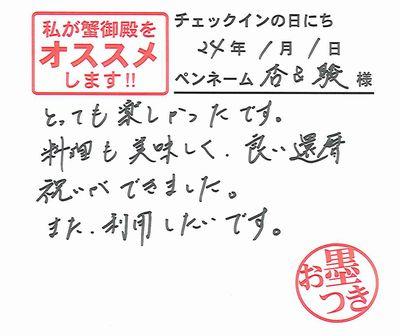 私が蟹御殿を
オススメ
します!!
チェックインの日にち
24年 1月 1日
ペンネーム 杏&駿 様
とっても楽しかったです。
料理も美味しく、良い還暦
祝いができました。
また、利用したいです。
お墨
つき